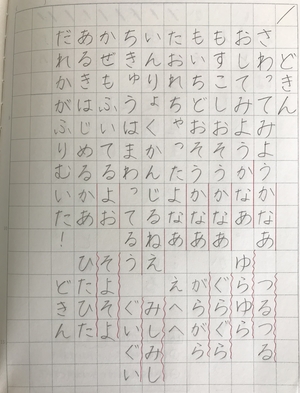 どきん
さわってみようかなあ つるつる
おしてみようかなあ ゆらゆら
もすこしおそうかなあ ぐらぐら
もいちどおそうかなあ がらがら
たおれちゃったよなあ えへへ
いんりょくかんじるねえ みしみし
ちきゅうはまわってるう ぐいぐい
かぜもふいてるよお そよそよ
あるきはじめるかあ ひたひた
だれかがふりむいた! どきん